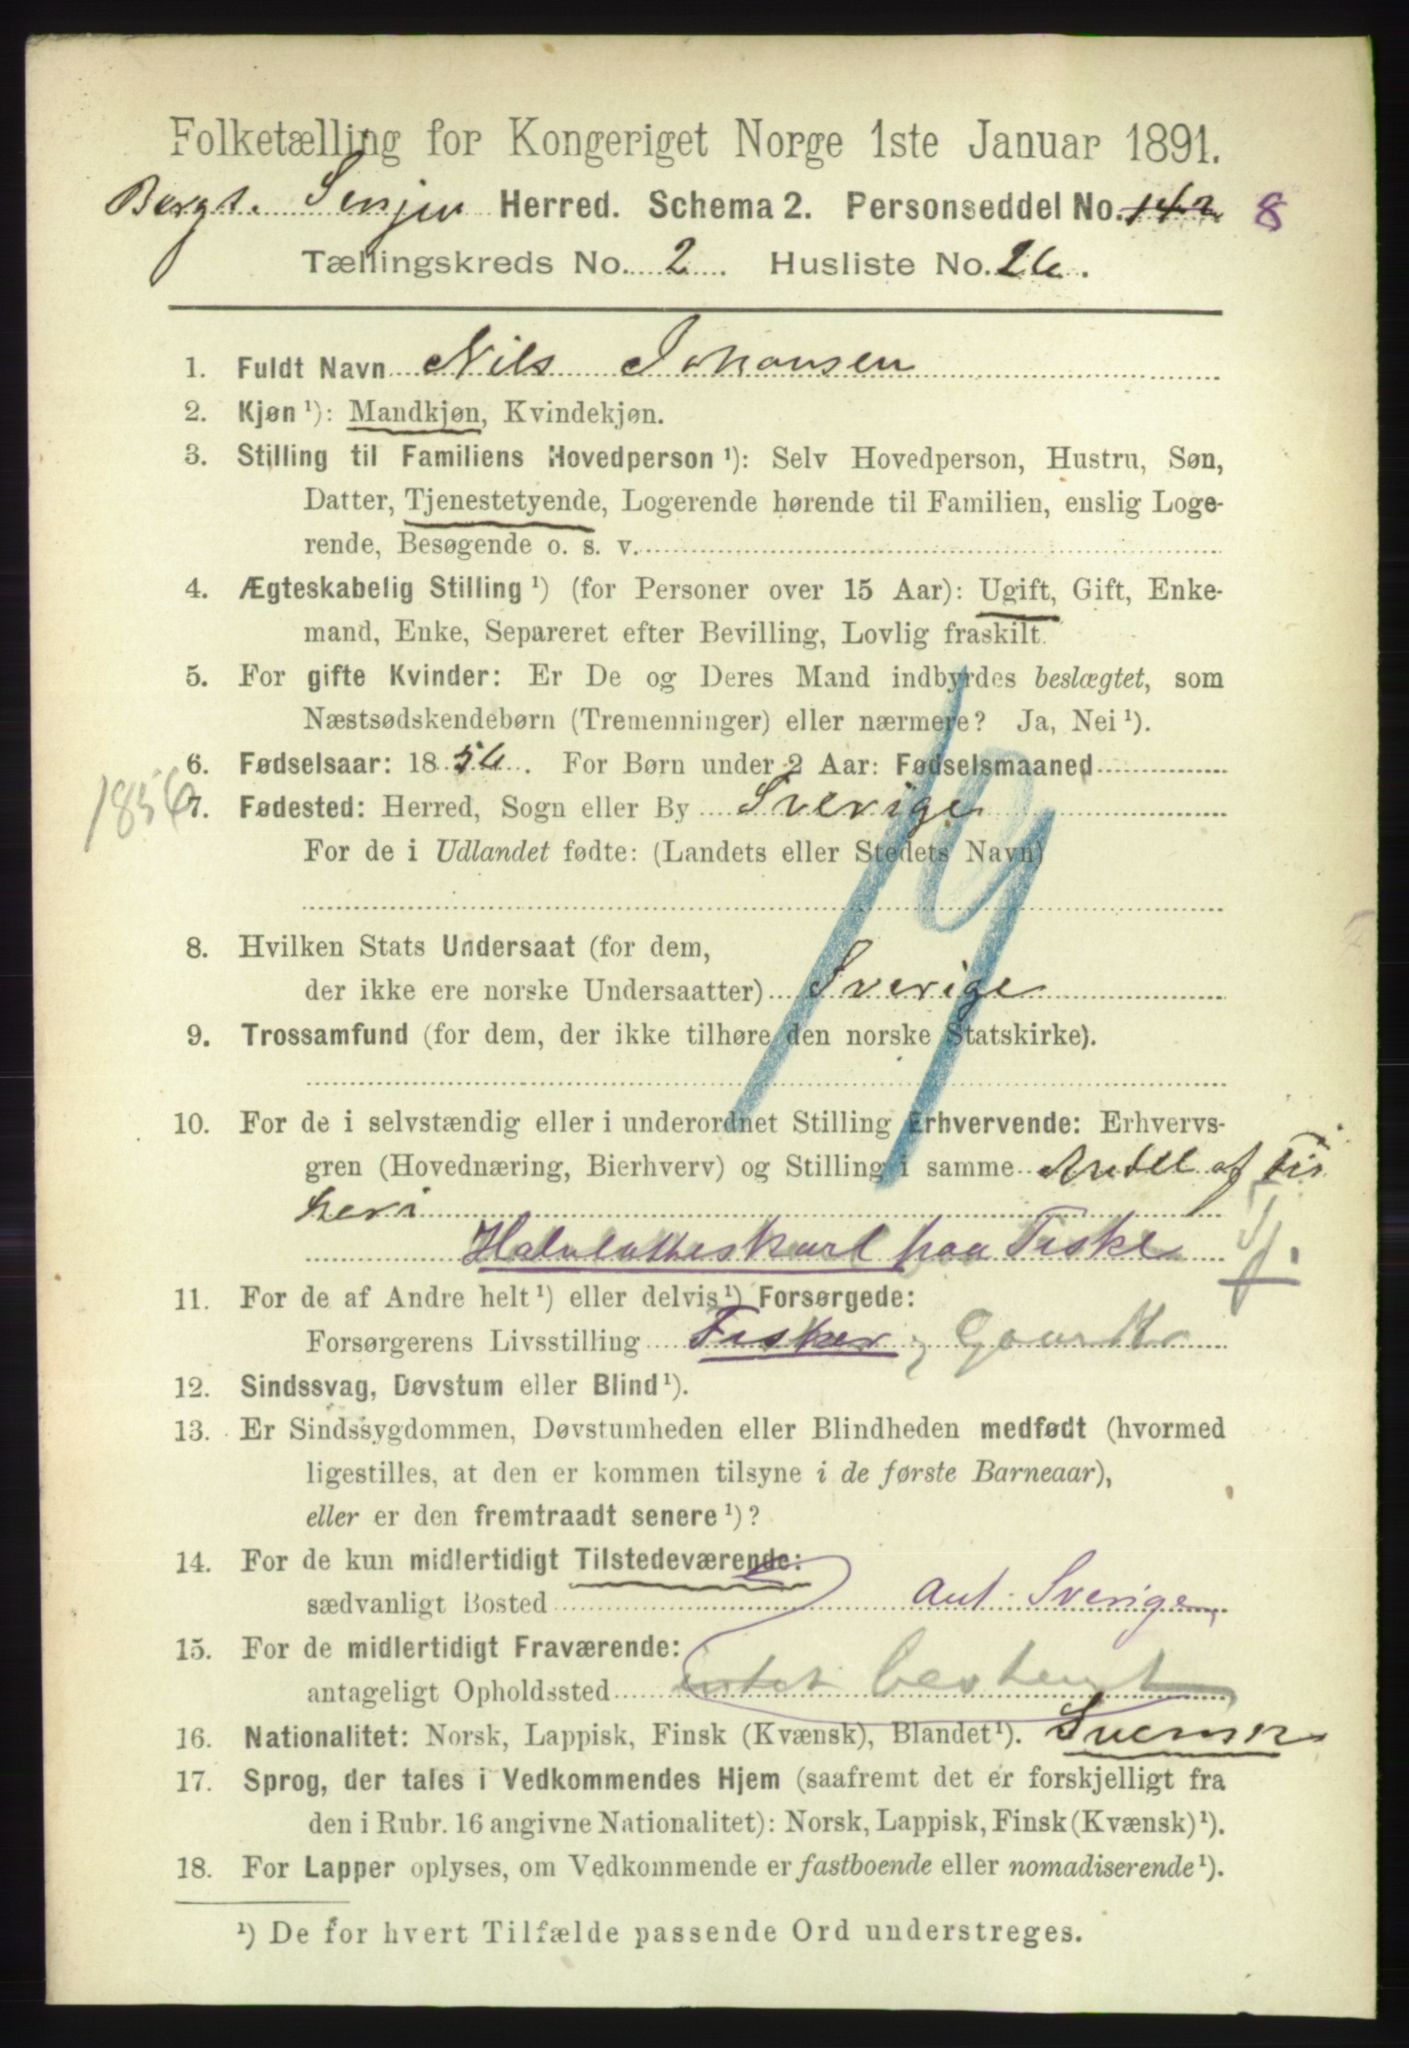 Folketælling for Kongeriget Norge 1ste Januar 1891.
Berg i Senjen Herred. Schema 2. Personseddel No. 142 8
Tællingskreds No. 2. Husliste No. 26.
1. Fuldt Navn Nils Johansen
2. Kjøn ¹): Mandkjøn, Kvindekjøn.
3. Stilling til Familiens Hovedperson ¹): Selv Hovedperson, Hustru, Søn,
Datter, Tjenestetyende, Logerende hørende til Familien, enslig Loge-
rende, Besøgende o. s. v.
4. Ægteskabelig Stilling ¹) (for Personer over 15 Aar): Ugift, Gift, Enke-
mand, Enke, Separeret efter Bevilling, Lovlig fraskilt.
5. For gifte Kvinder: Er De og Deres Mand indbyrdes beslægtet, som
Næstsødskendebørn (Tremenninger) eller nærmere? Ja, Nei ¹).
6. Fødselsaar: 1856. For Børn under 2 Aar: Fødselsmaaned
1856
7. Fødested: Herred, Sogn eller By Sverige
For de i Udlandet fødte: (Landets eller Stedets Navn)
8. Hvilken Stats Undersaat (for dem,
der ikke ere norske Undersaatter) Sverige
9. Trossamfund (for dem, der ikke tilhøre den norske Statskirke).
10. For de i selvstændig eller i underordnet Stilling Erhvervende: Erhvervs-
gren (Hovednæring, Bierhverv) og Stilling i samme Andel af Fis
keri
Halvlotteskarl paa Fiske
11. For de af Andre helt ¹) eller delvis ¹) Forsørgede:
Forsørgerens Livsstilling Fisker,
12. Sindssvag, Døvstum eller Blind ¹).
13. Er Sindssygdommen, Døvstumheden eller Blindheden medfødt (hvormed
ligestilles, at den er kommen tilsyne i de første Barneaar),
eller er den fremtraadt senere ¹)?
14. For de kun midlertidigt Tilstedeværende:
sædvanligt Bosted ant. Sverige
15. For de midlertidigt Fraværende:
antageligt Opholdssted intet bestemt
16. Nationalitet: Norsk, Lappisk, Finsk (Kvænsk), Blandet ¹). Svensk
17. Sprog, der tales i Vedkommendes Hjem (saafremt det er forskjelligt fra
den i Rubr. 16 angivne Nationalitet): Norsk, Lappisk, Finsk (Kvænsk) ¹).
18. For Lapper oplyses, om Vedkommende er fastboende eller nomadiserende ¹).
¹) De for hvert Tilfælde passende Ord understreges.